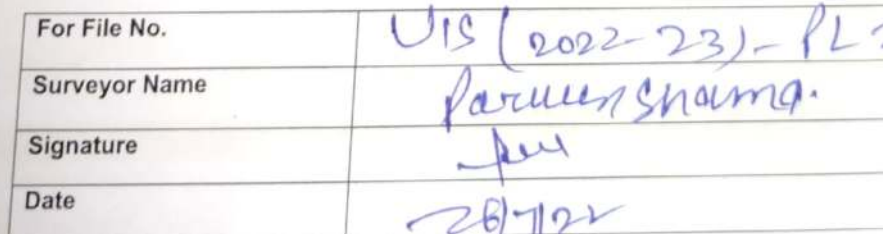 For File No. UIS (2022-23)-PL
Surveyor Name Parveen Sharma.
Signature
Date 28/7/22